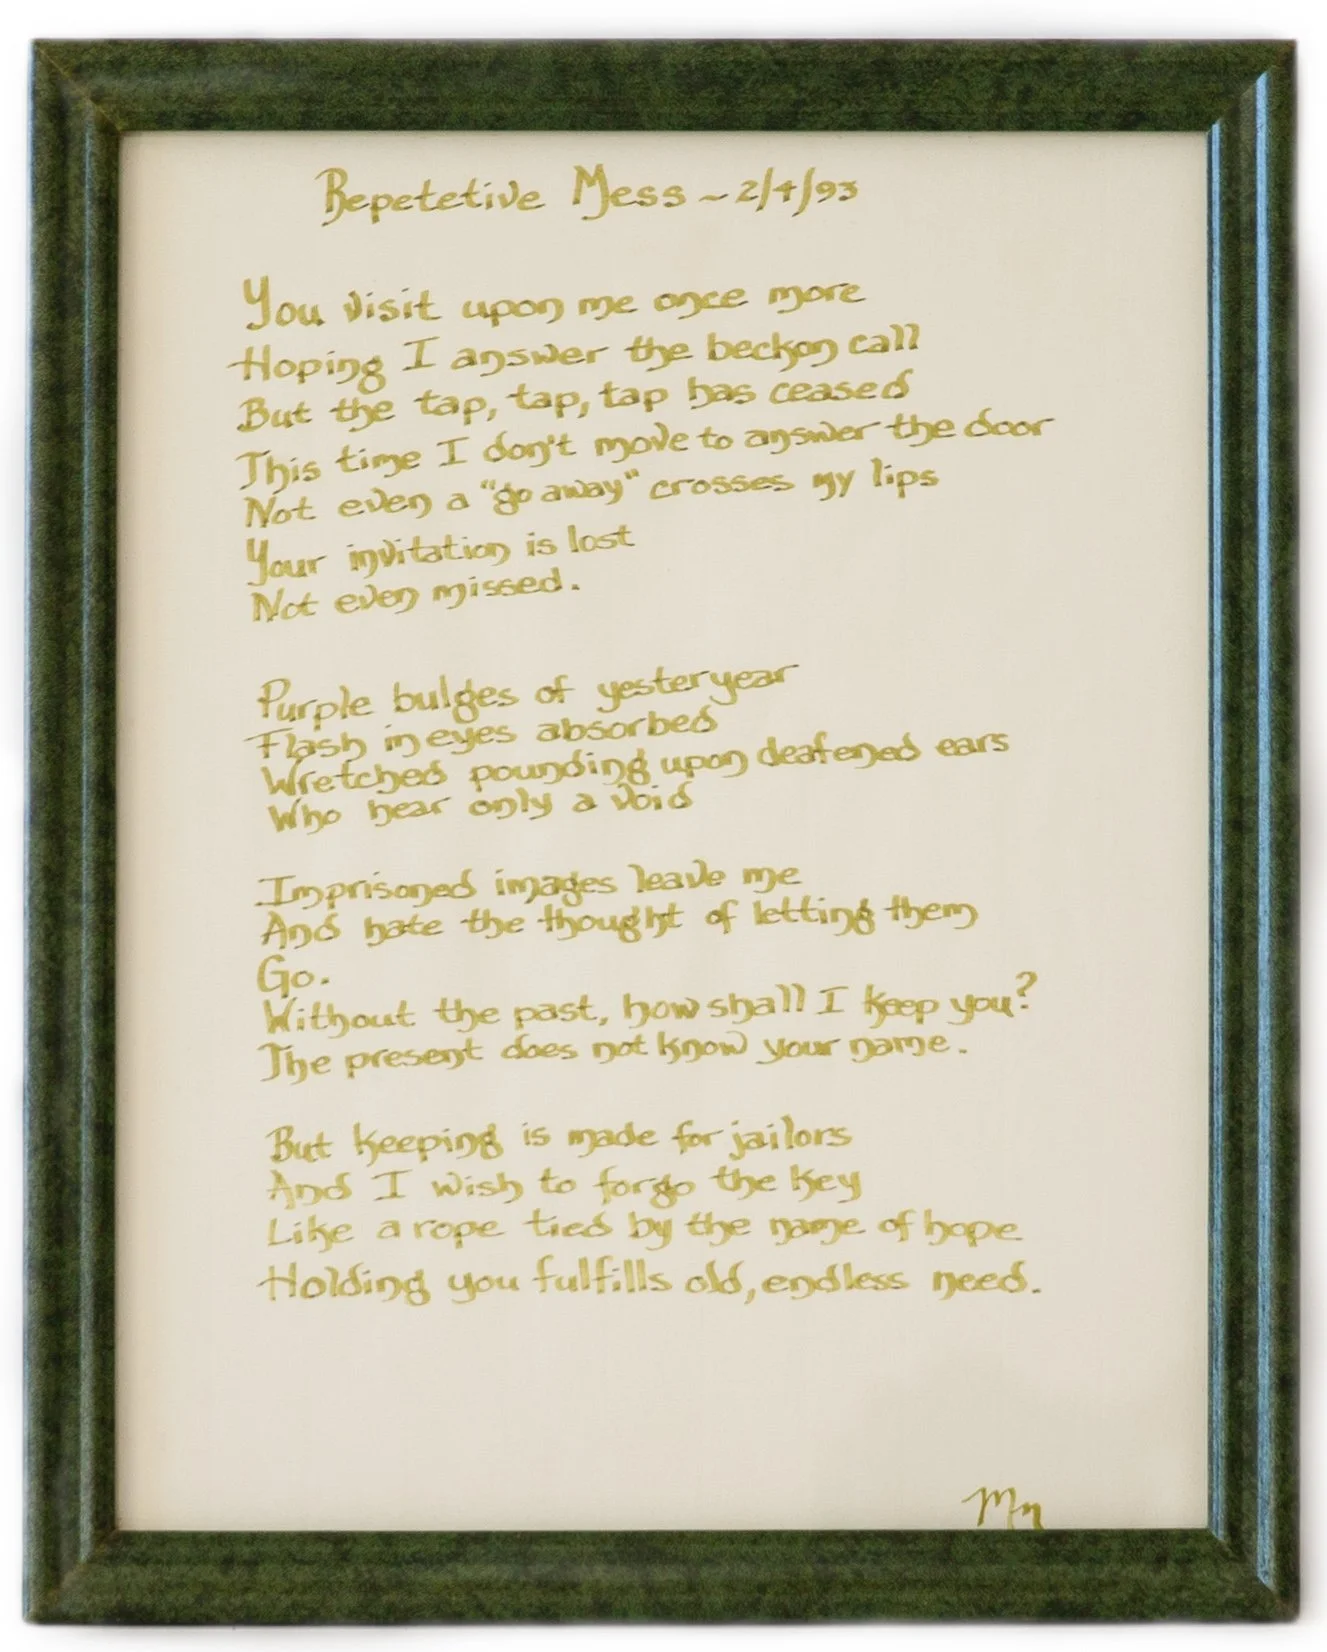 Repetetive Mess ~ 2/4/93
You visit upon me once more
Hoping I answer the beckon call
But the tap, tap, tap has ceased
This time I don't move to answer the door
Not even a "go away" crosses my lips
Your invitation is lost
Not even missed.
Purple bulges of yesteryear
Flash in eyes absorbed
Wretched pounding upon deafened ears
Who hear only a void
Imprisoned images leave me
And hate the thought of letting them
Go.
Without the past, how shall I keep you?
The present does not know your name.
But keeping is made for jailors
And I wish to forgo the key
Like a rope tied by the name of hope
Holding you fulfills old, endless need.